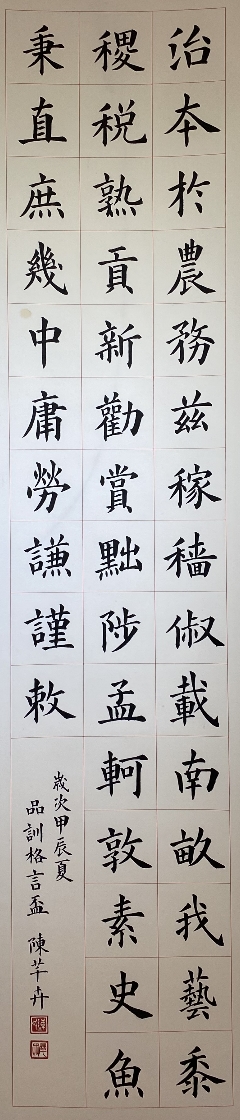 治本於農務茲稼穡俶載南畝我藝黍
稷稅熟貢新勸賞黜陟孟軻敦素史魚
秉直庶幾中庸勞謙謹敕
歲次甲辰夏
品訓格言盃 陳芊卉